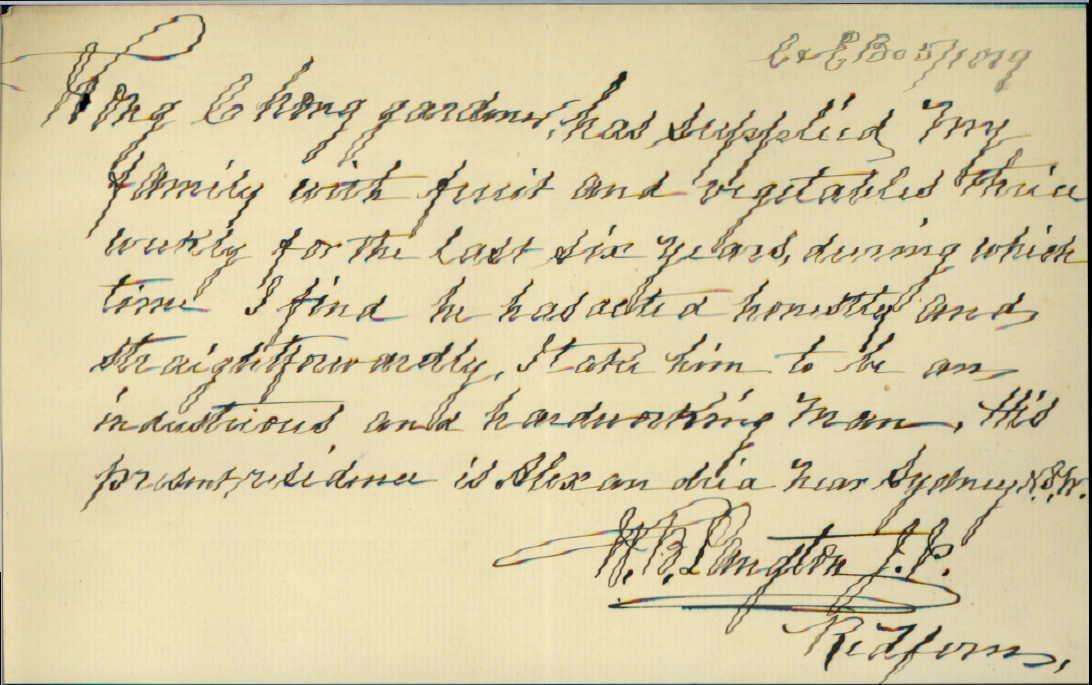 C & E Bo 5/1089
Hong Chong gardener, has supplied my
family with fruit and vegetables thrice
weekly for the last six years, during which
time I find he has acted honestly and
straightforwardly, I take him to be an
industrious and hardworking man, His
present residence is Alexandria near Sydney N.S.W.
W. B. Langton J. P.
Redfern,